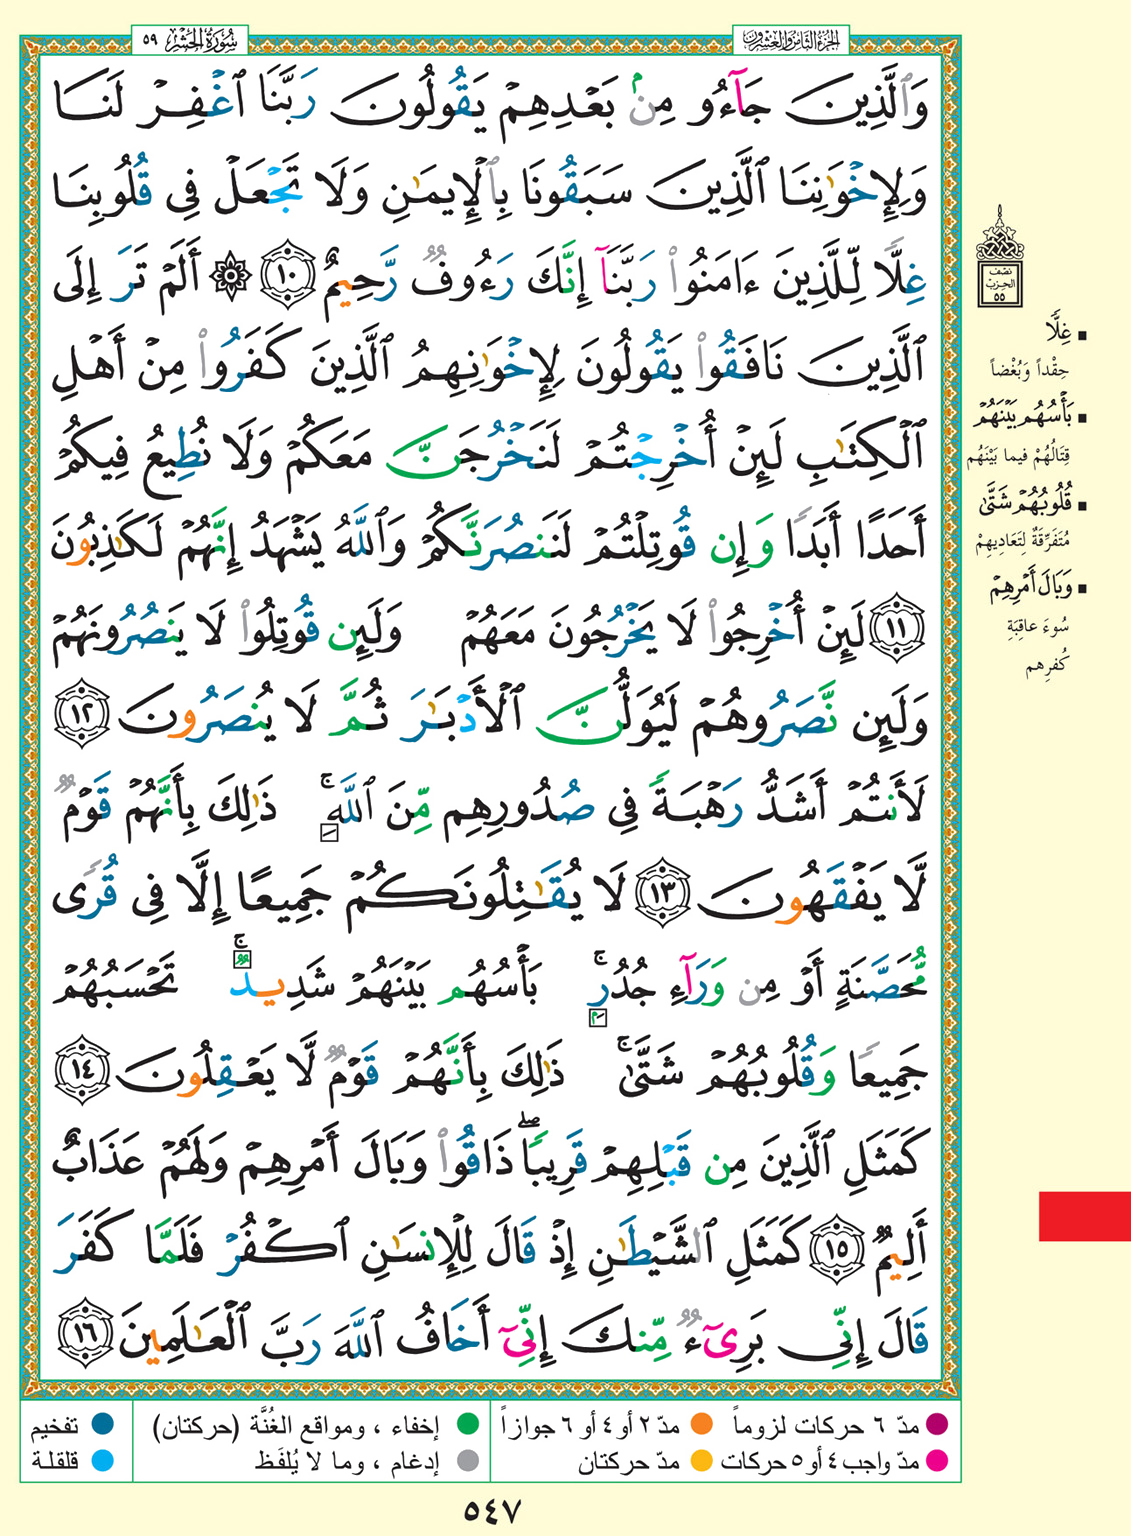 الجزء الثامن والعشرون
سُورَةُ الحَشْرِ ٥٩
وَٱلَّذِينَ جَآءُو مِنۢ بَعْدِهِمْ يَقُولُونَ رَبَّنَا ٱغْفِرْ لَنَا
وَلِإِخْوَٰنِنَا ٱلَّذِينَ سَبَقُونَا بِٱلْإِيمَٰنِ وَلَا تَجْعَلْ فِى قُلُوبِنَا
غِلًّا لِّلَّذِينَ ءَامَنُوا۟ رَبَّنَآ إِنَّكَ رَءُوفٌ رَّحِيمٌ ١٠ ۞ أَلَمْ تَرَ إِلَى
ٱلَّذِينَ نَافَقُوا۟ يَقُولُونَ لِإِخْوَٰنِهِمُ ٱلَّذِينَ كَفَرُوا۟ مِنْ أَهْلِ
ٱلْكِتَٰبِ لَئِنْ أُخْرِجْتُمْ لَنَخْرُجَنَّ مَعَكُمْ وَلَا نُطِيعُ فِيكُمْ
أَحَدًا أَبَدًا وَإِن قُوتِلْتُمْ لَنَنصُرَنَّكُمْ وَٱللَّهُ يَشْهَدُ إِنَّهُمْ لَكَٰذِبُونَ
١١ لَئِنْ أُخْرِجُوا۟ لَا يَخْرُجُونَ مَعَهُمْ وَلَئِن قُوتِلُوا۟ لَا يَنصُرُونَهُمْ
وَلَئِن نَّصَرُوهُمْ لَيُوَلُّنَّ ٱلْأَدْبَٰرَ ثُمَّ لَا يُنصَرُونَ ١٢
لَأَنتُمْ أَشَدُّ رَهْبَةً فِى صُدُورِهِم مِّنَ ٱللَّهِ ۚ ذَٰلِكَ بِأَنَّهُمْ قَوْمٌ
لَّا يَفْقَهُونَ ١٣ لَا يُقَٰتِلُونَكُمْ جَمِيعًا إِلَّا فِى قُرًى
مُّحَصَّنَةٍ أَوْ مِن وَرَآءِ جُدُرٍۭ ۚ بَأْسُهُم بَيْنَهُمْ شَدِيدٌ ۚ تَحْسَبُهُمْ
جَمِيعًا وَقُلُوبُهُمْ شَتَّىٰ ۚ ذَٰلِكَ بِأَنَّهُمْ قَوْمٌ لَّا يَعْقِلُونَ ١٤
كَمَثَلِ ٱلَّذِينَ مِن قَبْلِهِمْ قَرِيبًا ۖ ذَاقُوا۟ وَبَالَ أَمْرِهِمْ وَلَهُمْ عَذَابٌ
أَلِيمٌ ١٥ كَمَثَلِ ٱلشَّيْطَٰنِ إِذْ قَالَ لِلْإِنسَٰنِ ٱكْفُرْ فَلَمَّا كَفَرَ
قَالَ إِنِّى بَرِىٓءٌ مِّنكَ إِنِّىٓ أَخَافُ ٱللَّهَ رَبَّ ٱلْعَٰلَمِينَ ١٦
نصف
الحزب
٥٥
▪ غِلًّا
حِقْداً وَبُغْضاً
▪ بَأْسُهُم بَيْنَهُمْ
قِتَالُهُمْ فيما بَيْنَهُم
▪ قُلُوبُهُمْ شَتَّىٰ
مُتَفَرِّقَةٌ لِتَعَادِيهِمْ
▪ وَبَالَ أَمْرِهِمْ
سُوءَ عاقِبَةِ
كُفرِهم
مدّ ٦ حركات لزوماً
مدّ ٢ أو ٤ أو ٦ جوازاً
إخفاء ، ومواقع الغُنَّة (حركتان)
تفخيم
مدّ واجب ٤ أو ٥ حركات
مدّ حركتان
إدغام ، وما لا يُلفَظ
قلقلة
٥٤٧